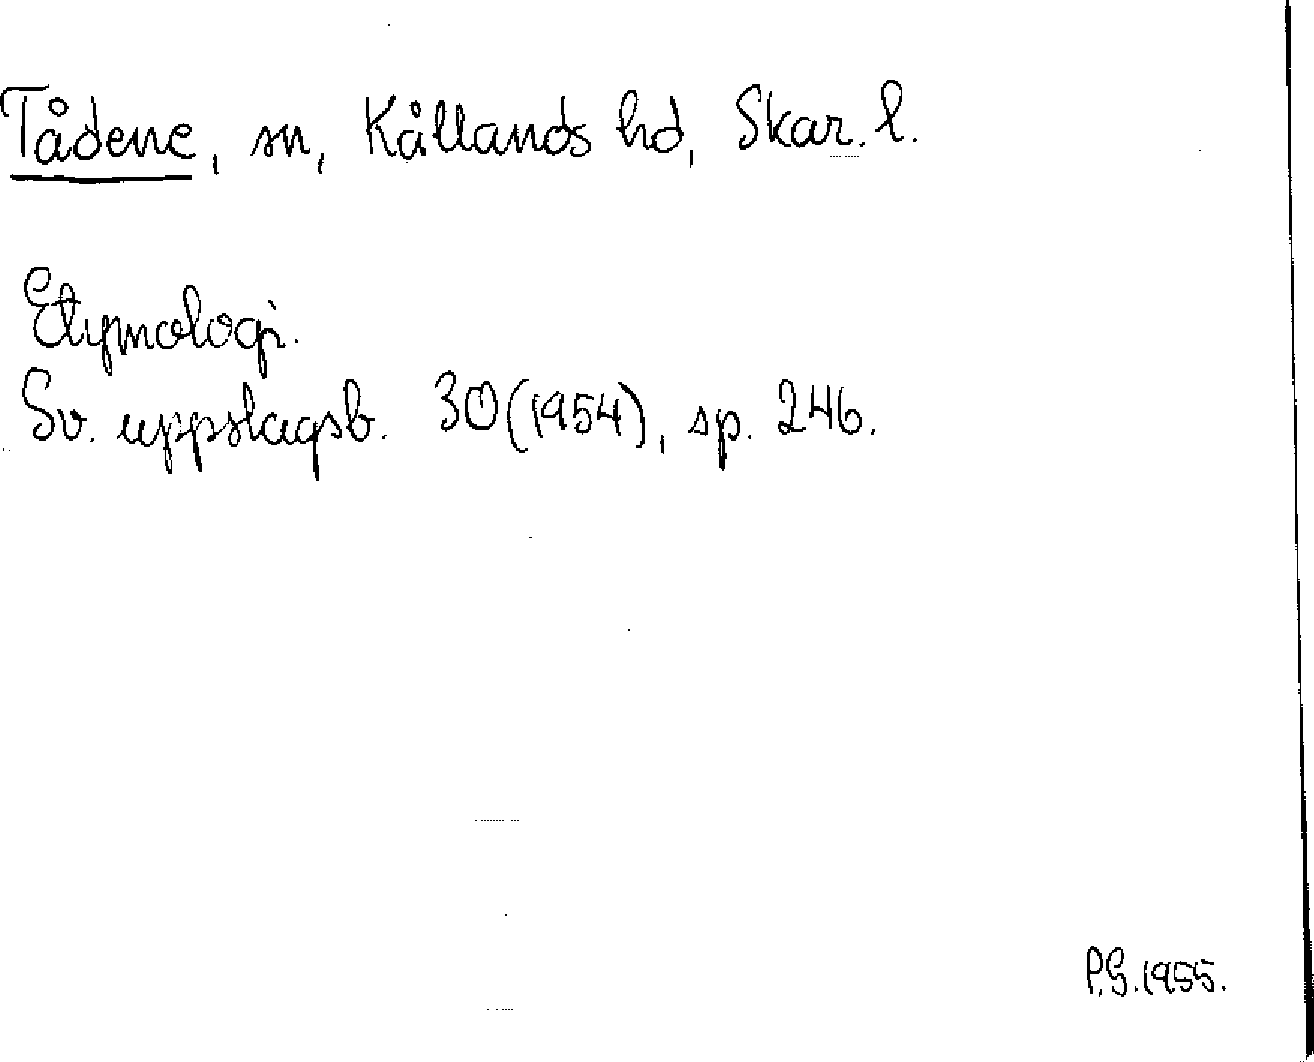 Tådene, sn, Kållands hd, Skar. l.
Etymologi.
Sv. uppslagsb. 30 (1954), sp. 246.
P.G. 1955.